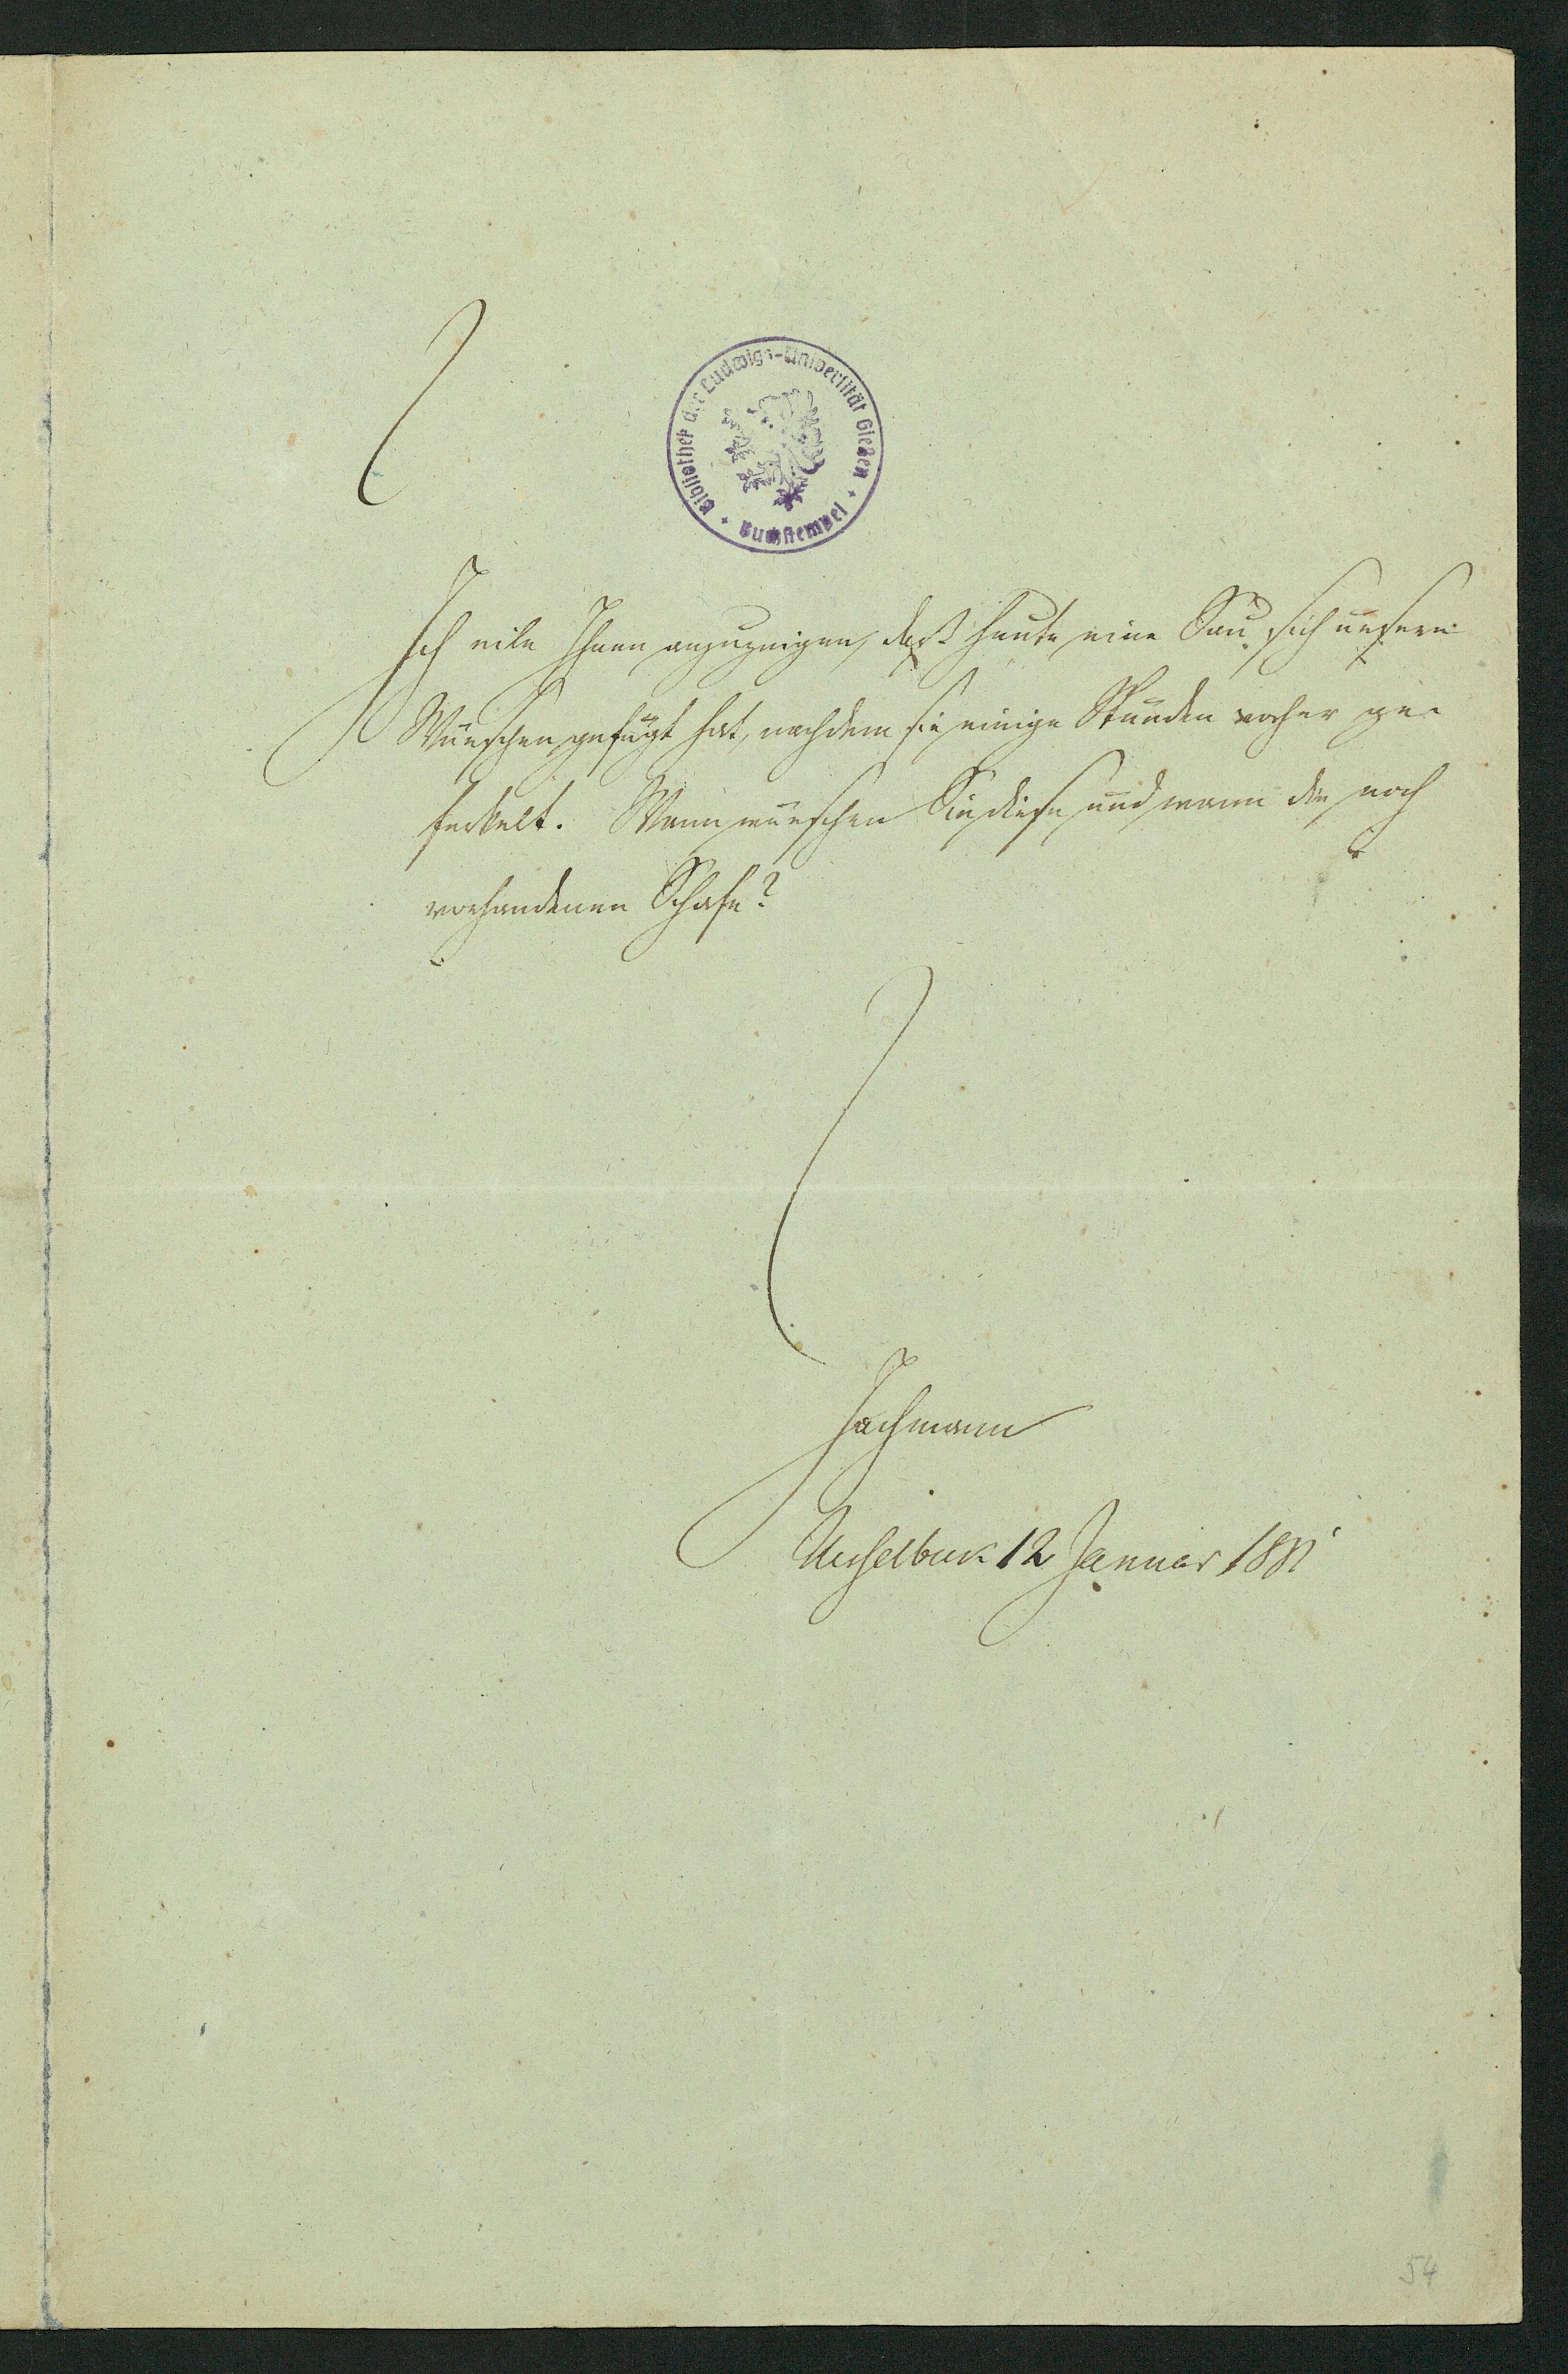 Bibliothek der Ludwigs-Universität Gießen
Buchstempel
Ich eile Ihnen anzuzeigen, daß heute eine Sau sich unsern
Wünschen gefügt hat, nachdem sie einige Stunden vorher ge-
ferkelt. Wann wünschen Sie diese und wann die noch
vorhandenen Schafe?
Jachmann
12 Januar
54